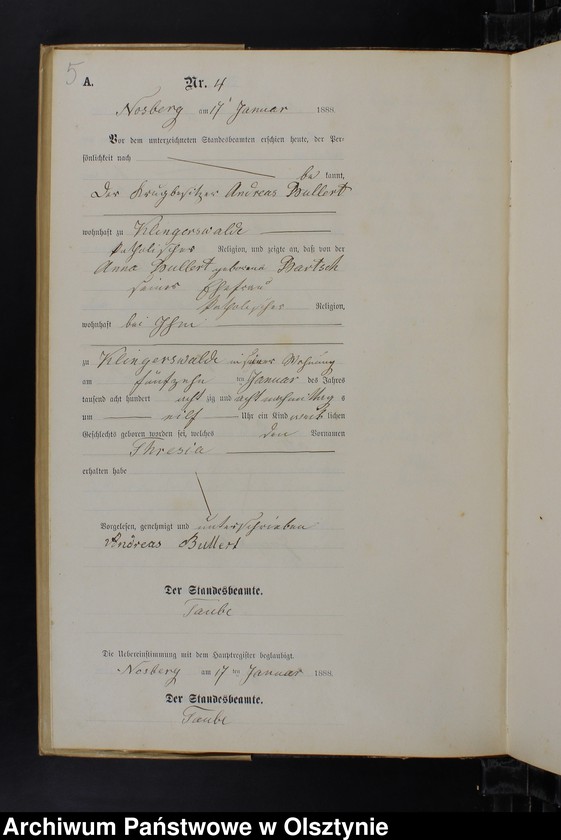 5
A. Nr. 4
Nosberg am 17 Januar 1888.
Vor dem unterzeichneten Standesbeamten erschien heute, der Per-
sönlichkeit nach
be kannt,
der Krugbesitzer Andreas Bullert
wohnhaft zu Klingerswalde
katholischer Religion, und zeigte an, daß von der
Anna Bullert geborene Bartsch
seiner Ehefrau
katholischer Religion,
wohnhaft bei Ihm
zu Klingerswalde in seiner Wohnung
am fünfzehn ten Januar des Jahres
tausend acht hundert acht zig und acht nachmittag s
um eilf Uhr ein Kind weib lichen
Geschlechts geboren worden sei, welches den Vornamen
Thresia
erhalten habe
Vorgelesen, genehmigt und unterschrieben
Andreas Bullert
Der Standesbeamte.
Taube
Die Uebereinstimmung mit dem Hauptregister beglaubigt.
Nosberg am 17 ten Januar 1888.
Der Standesbeamte.
Taube
Archiwum Państwowe w Olsztynie